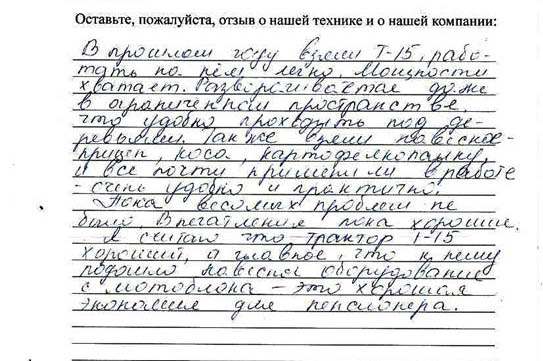 Оставьте, пожалуйста, отзыв о нашей технике и о нашей компании:
В прошлом году взяли Т-15, рабо-
тать на нём легко. Мощности
хватает. Разворачивается даже
в ограниченном пространстве,
что удобно проходить под де-
ревьями. Также взяли навесное-
прицеп, коса, картофелекопалку,
и все почти применили в работе
- очень удобно и практично.
Пока весомых проблем не
было. Впечатления пока хорошие.
Я считаю что трактор Т-15
хороший, а главное, что к нему
подошло навесное оборудование
с мотоблока - это хорошая
экономия для пенсионера.